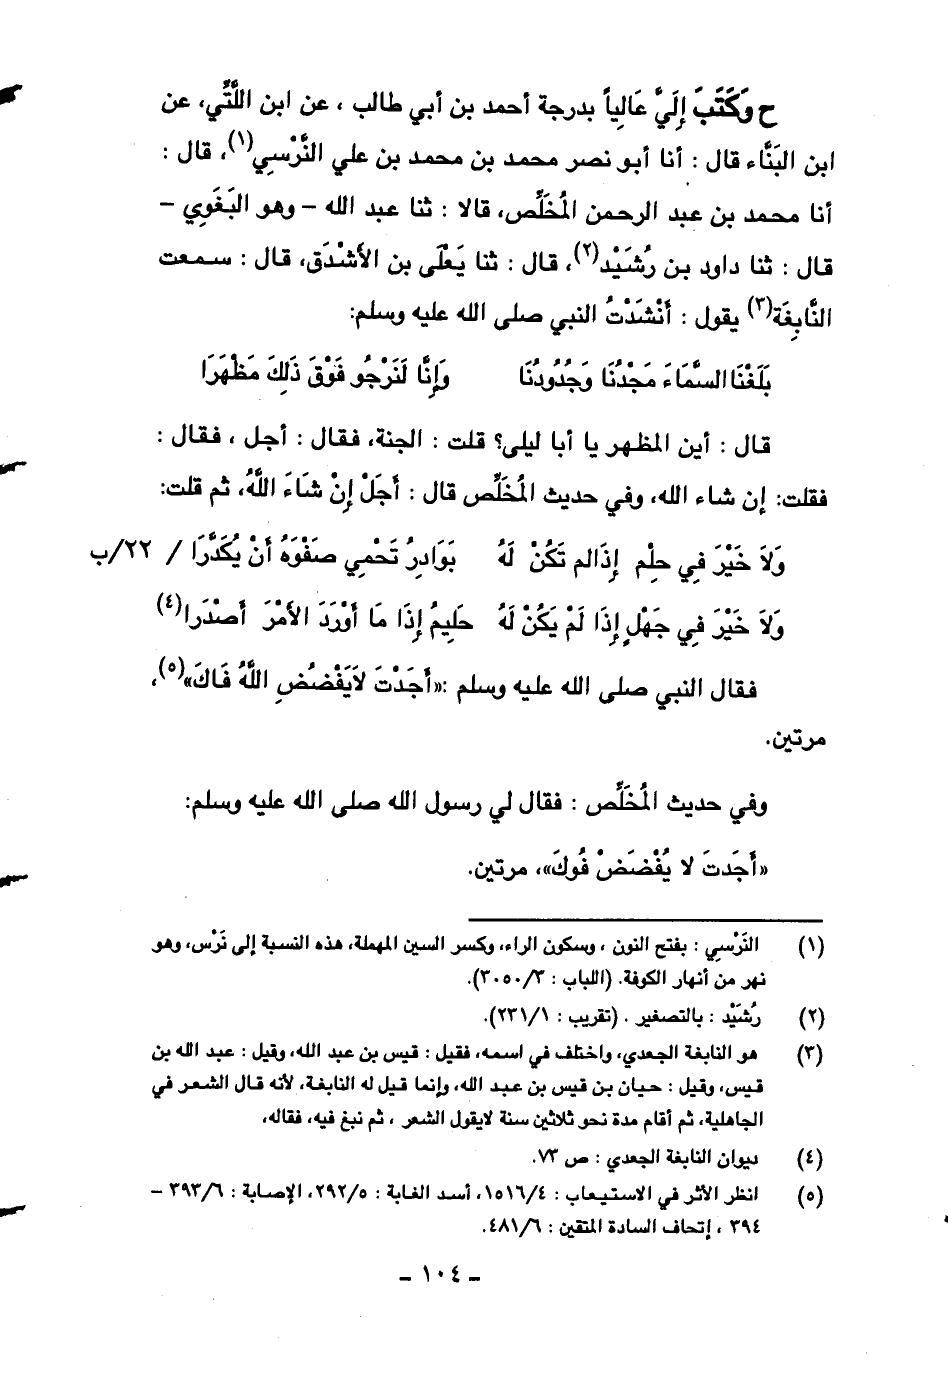 ح وَكَتَبَ إِلَيَّ عَالِياً بدرجة أحمد بن أبي طالب ، عن ابن اللَّتِّي، عن
ابن البَنَّاء قال : أنا أبو نصر محمد بن محمد بن علي النَّرْسِي(١)، قال :
أنا محمد بن عبد الرحمن المُخَلِّص، قالا : ثنا عبد الله – وهو البَغَوِي –
قال : ثنا داود بن رُشَيْد(٢)، قال : ثنا يَعْلَى بن الأَشْدَق، قال : سمعت
النَّابِغَة(٣) يقول : أَنْشَدْتُ النبي صلى الله عليه وسلم:
بَلَغْنَا السَّمَاءَ مَجْدُنَا وَجُدُودُنَا وَإِنَّا لَنَرْجُو فَوْقَ ذَلِكَ مَظْهَرَا
قال : أين المظهر يا أبا ليلى؟ قلت : الجنة، فقال : أجل ، فقال :
فقلت: إن شاء الله، وفي حديث المُخَلِّص قال : أَجَلْ إِنْ شَاءَ اللَّهُ، ثم قلت:
وَلاَ خَيْرَ فِي حِلْمٍ إِذَالم تَكُنْ لَهُ بَوَادِرُ تَحْمِي صَفْوَهُ أَنْ يُكَدَّرَا / ٢٢/ب
وَلاَ خَيْرَ فِي جَهْلٍ إِذَا لَمْ يَكُنْ لَهُ حَلِيمُ إِذَا مَا أَوْرَدَ الأَمْرَ أَصْدَرا(٤)
فقال النبي صلى الله عليه وسلم :«أَجَدْتَ لاَيَفْضُضِ اللَّهُ فَاكَ»(٥)،
مرتين.
وفي حديث المُخَلِّص : فقال لي رسول الله صلى الله عليه وسلم:
«أَجَدتَ لا يُفْضَضْ فُوكَ»، مرتين.
(١) النَّرْسِي : بفتح النون ، وسكون الراء، وكسر السين المهملة، هذه النسبة إلى نَرْس، وهو
نهر من أنهار الكوفة. (اللباب : ٣٠٥٠/٣).
(٢) رُشَيْد : بالتصغير . (تقريب : ٢٣١/١).
(٣) هو النابغة الجعدي، واختلف في اسمه، فقيل : قيس بن عبد الله، وقيل : عبد الله بن
قيس، وقيل : حيان بن قيس بن عبد الله، وإنما قيل له النابغة، لأنه قال الشعر في
الجاهلية، ثم أقام مدة نحو ثلاثين سنة لايقول الشعر ، ثم نبغ فيه، فقاله،
(٤) ديوان النابغة الجعدي : ص ٧٣.
(٥) انظر الأثر في الاستيعاب : ١٥١٦/٤، أسد الغابة : ٢٩٢/٥، الإصابة : ٣٩٣/٦ –
٣٩٤ ، إتحاف السادة المتقين : ٤٨١/٦.
– ١٠٤ –